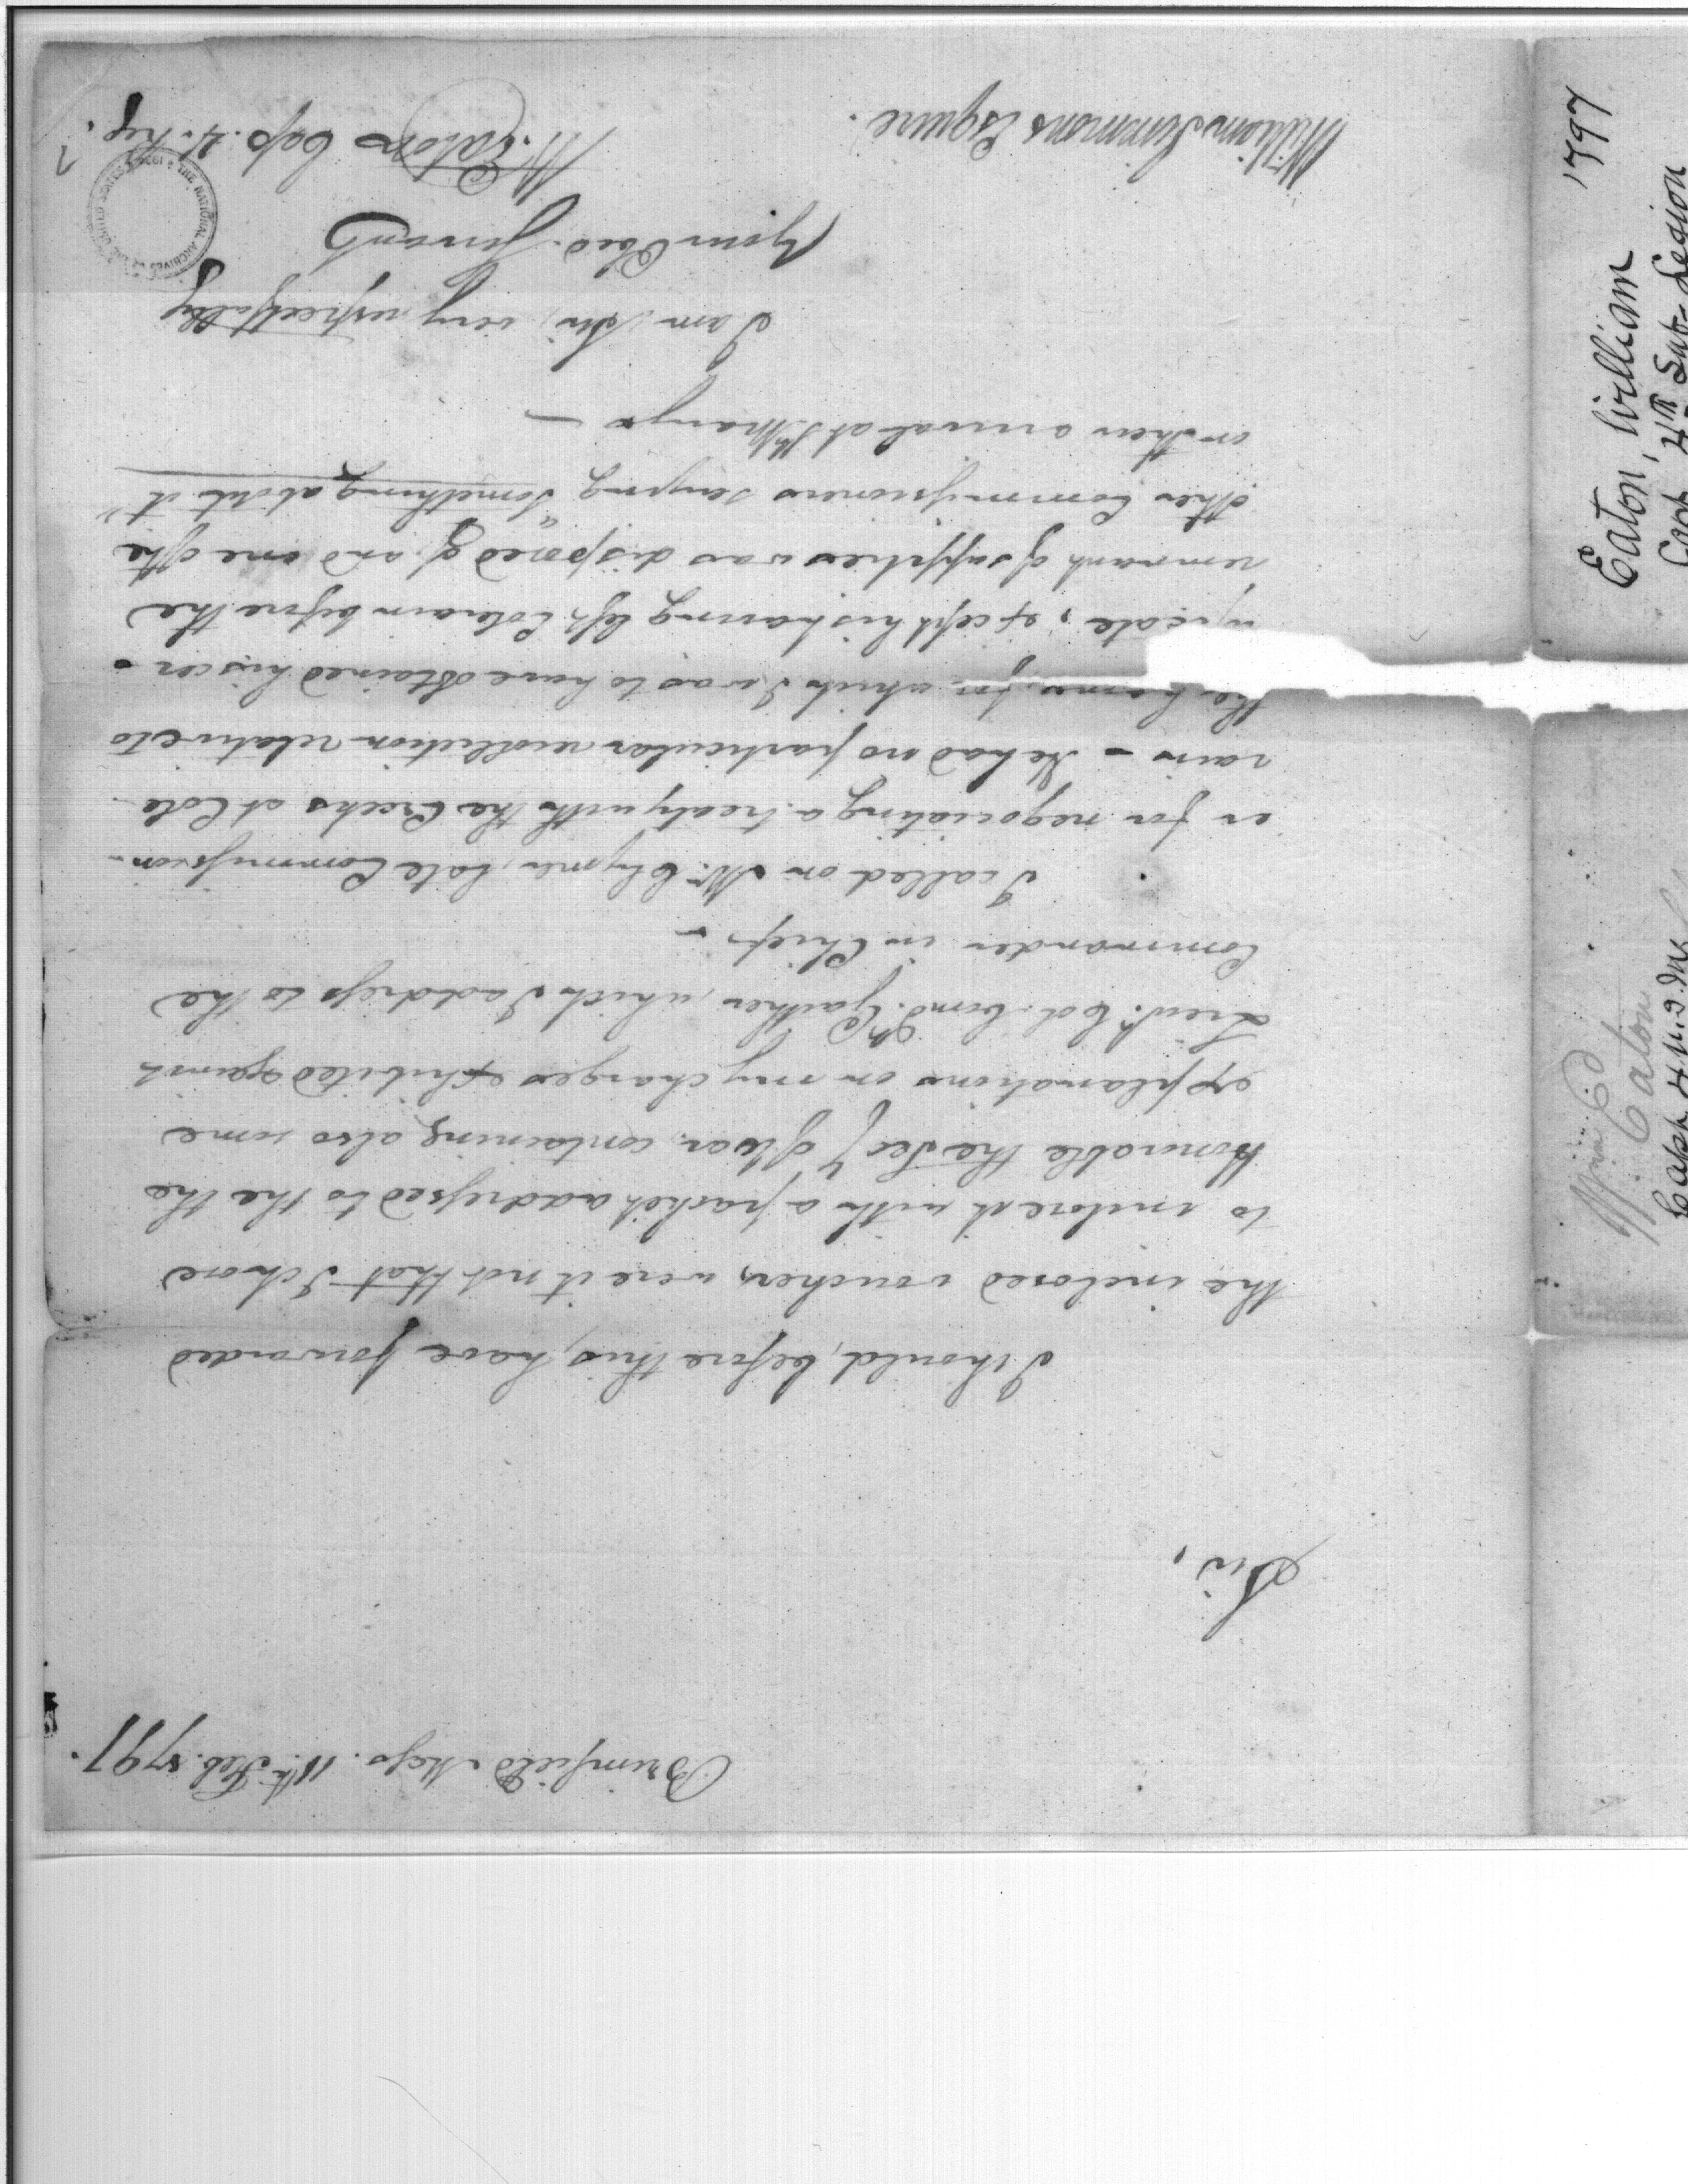 Brimfield Mass. 11th Feb. 1797.
Sir,
I should, before this, have forwarded
the inclosed voucher, were it not that I chose
to inclose it with a packet addressed to the the
Honorable the Secy of War, containing also some
explanations on my charges exhibited against
Lieut. Col. Comd. Gaither, which I address to the
Commander in Chief. –
I called on Mr. Clymer, late Commission-
er for negociating a treaty with the Creeks at Cole-
rain – He had no particular recollection relative to
the for which I was to have obtained his cer-
tificate, except his having left Colerain before the
remnant of supplies was disposed of, and one of the
other Commissioners saying "something about it"
on their arrival at St. Marys –
I am, Sir, very respectfully
Your Obed. Servant
W. Eaton Cap. 4. Reg.
William Simmons Esquire.
THE NATIONAL ARCHIVES OF THE UNITED STATES
1797
Eaton, William
Capt 4th Sub-Legion
Wm Eaton
Capt 4 U.S. Inf